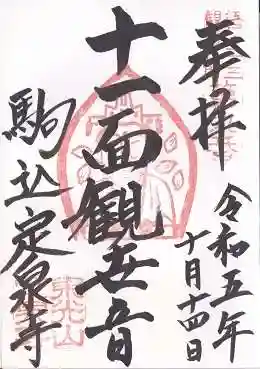 奉拝
令和五年
十月十四日
十一面観世音
駒込定泉寺
東光山